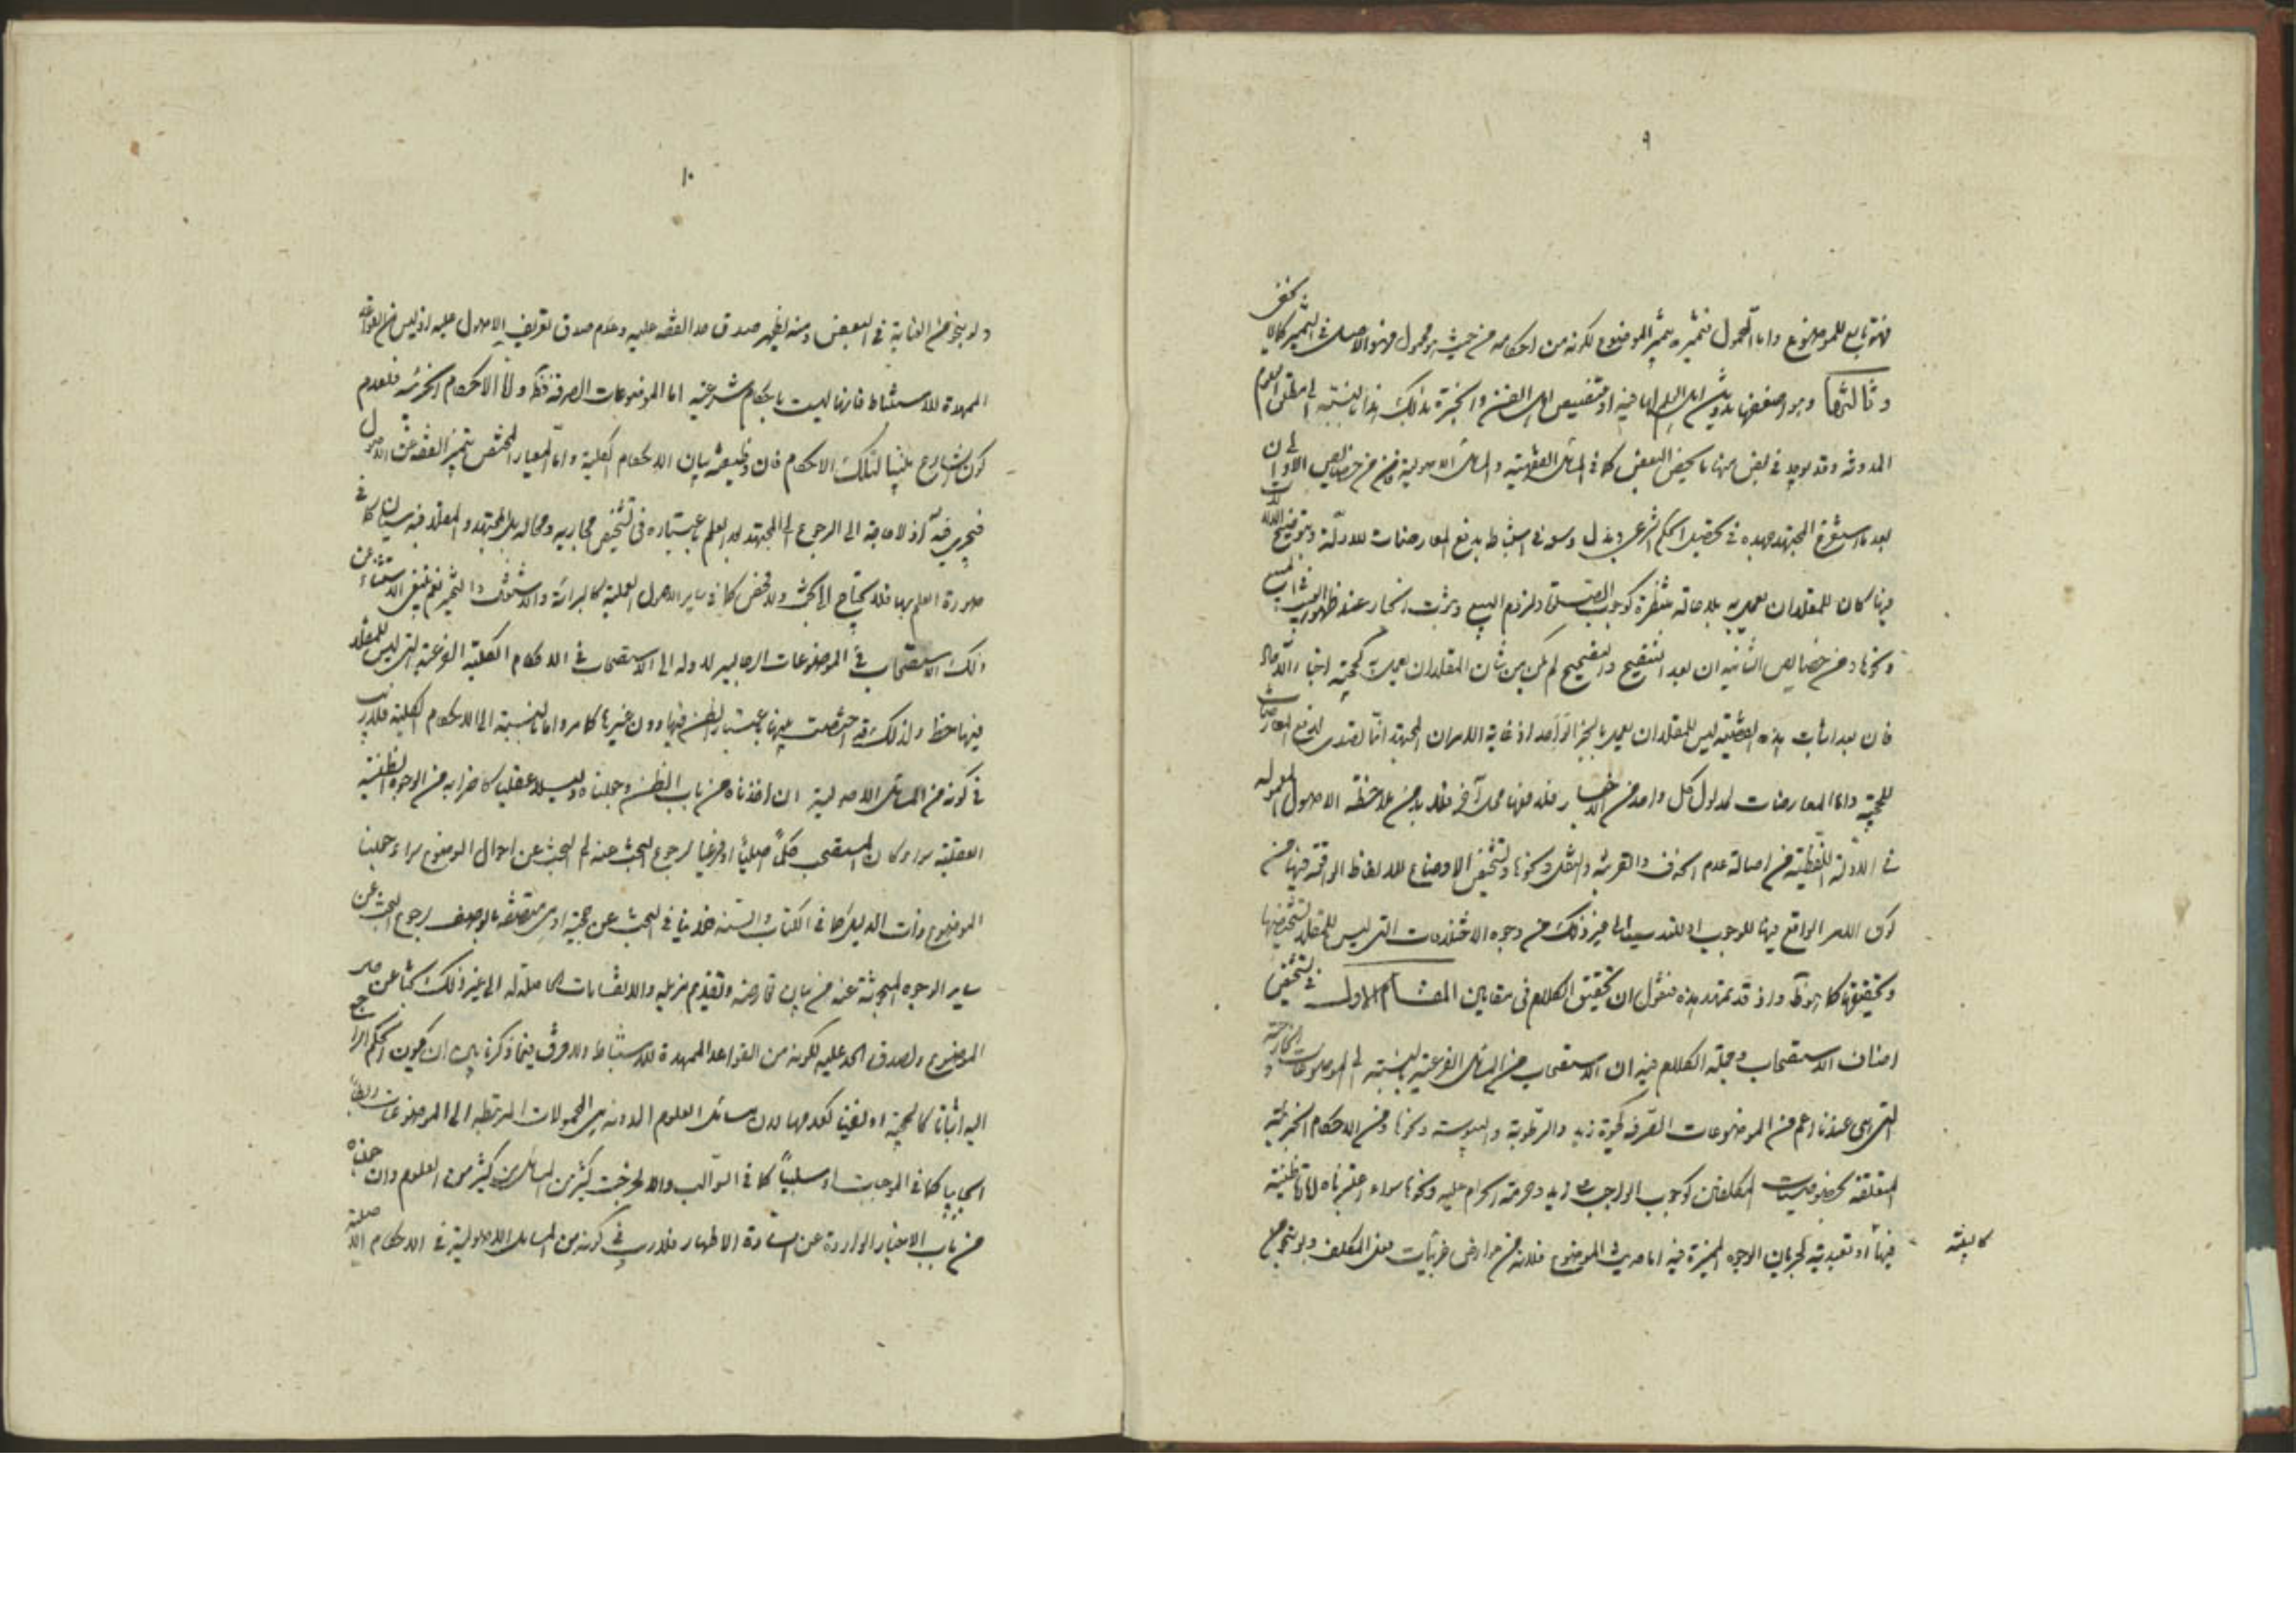 ٩
فهو تابع للموضوع واما المحمول فتميزه بتميز الموضوع لكونه من احكامه من حيث هو محمول فهو الاصل في التميز كما لا يخفى
وثالثها وهو اضعفها تدوين اهل العلم اياه فيه او تنصيص اهل الفن والخبرة بذلك هذا بالنسبة الى مطلق العلوم
المدونة وقد يوجد في بعض منها ما يخص البعض كما في المسائل الفقهية والمسائل الاصولية فان من خصائص الاولى ان
بعد ما استفرغ المجتهد جهده في تحصيل الحكم الشرعي وبذل وسعه في استنباطه بدفع المعارضات للادلة وتوضيح الدلالات
فيها كان للمقلد ان يعمل به بلا حالة منتظرة كوجوب الصلوة ولزوم البيع وثبوت الخيار عند ظهور العيب
ونحوها ومن خصايص الثانية ان بعد التنقيح والتصحيح لم يكن من شأن المقلد ان يعمل به كحجية اخبار الآحاد
فان بعد اثبات هذه القضية ليس للمقلد ان يعمل بالخبر الواحد اذ غاية الامر ان المجتهد انما تصدى لدفع المعارضات
للحجية واما المعارضات لمدلول كل واحد من الاخبار فلدفعها محل آخر فلا بد من ملاحظة الاصول المعمولة
في الادلة اللفظية من اصالة عدم الحذف والقرينة والنقل ونحوها وتشخيص الاوضاع للالفاظ الواقعة فيها من
كون الامر الواقع فيها للوجوب او للندب الى غير ذلك من وجوه الاختلافات التي ليس للمقلد تشخيصها
وتحقيقها كما هو ظ واذ قد تمهد هذه فنقول ان تحقيق الكلام في مقامين المقام الاول في تشخيص
اصناف الاستصحاب وجملة الكلام فيه ان الاستصحاب من المسائل الفرعية بالنسبة الى الموضوعات الخارجية
التي هي عندنا اعم من الموضوعات الصرفة كحيوة زيد والرطوبة واليبوسة ونحوها ومن الاحكام الجزئية
المتعلقة بخصوصيات المكلفين كوجوب الواجب على زيد وحرمة الحرام عليه ونحوها سواء اعتبرناه امارة ظنية
فيها او تعبدية لجريان الوجوه المميزة فيه اما حديث الموضوع فلانه من عوارض فعل المكلف
١٠
ولو بنحو من العناية في البعض ومنه يظهر صدق حد الفقه عليه وعدم صدق تعريف الاصول عليه اذ ليس من القواعد
الممهدة للاستنباط فانها ليست باحكام شرعية اما الموضوعات الصرفة فظ واما الاحكام الجزئية فلعدم
كون الشارع مبينا لتلك الاحكام فان وظيفته بيان الاحكام الكلية واما المعيار المختص بتميز الفقه عن الاصول
فيجري فيه اذ لا حاجة الى الرجوع الى المجتهد بعد العلم باعتباره في تشخيص مجاريه ومحاله بل المجتهد والمقلد فيه سيان كما في
صورة العلم بها فلا يحتاج الى بحث ولا فحص كما في ساير الاصول العملية كالبرائة والاشتغال والتخيير نعم ينبغي الاستثناء عن
ذلك الاستصحاب في الموضوعات الرجالية لاوله الى الاستصحاب في الاحكام الكلية الفرعية التي ليس للمقلد
فيها حظ ولذلك قد اختصت من بينها باعتبار الظن فيها دون غيرها كما مر واما بالنسبة الى الاحكام الكلية فلا ريب
في كونه من المسائل الاصولية ان اخذناه من باب الظن وجعلناه دليلا عقليا كاضرابه من الوجوه الظنية
العقلية سواء كان المستصحب حكما اصليا او فرعيا لرجوع البحث عنه الى البحث عن احوال الموضوع سواء جعلنا
الموضوع ذات الدليل كما في الكتاب والسنة فلا ينافي البحث عن حجية او هي متصفة بالوصف لرجوع البحث عن
ساير الوجوه المبحوثة عنه من بيان تعارضه وتقديم مزيله والانقسامات الحاصلة له الى غير ذلك بحثا عن
الموضوع ولصدق الحد عليه لكونه من القواعد الممهدة للاستنباط ولا فرق فيما ذكرنا بين ان يكون الحكم الراجع
اليه اثباتا كالحجية او نفيا كعدمها لان مسائل العلوم المدونة هي المحمولات المرتبطة الى الموضوعات ربطا
ايجابيا كما في الموجبات او سلبيا كما في السوالب والا لخرجت كثير من المسائل من كثير من العلوم وان جعلناه
من باب الاخبار الواردة عن السادة الاطهار فلا ريب في كونه من المسائل الاصولية في الاحكام الاصلية